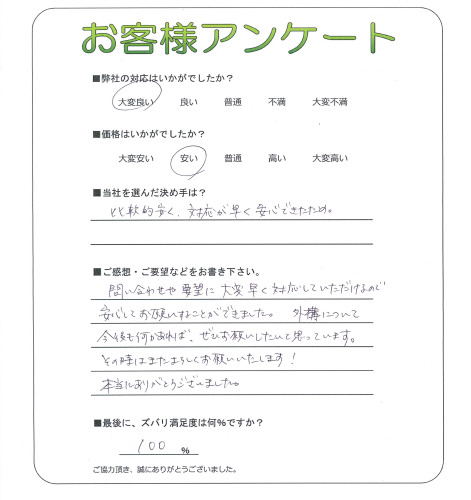 お客様アンケート
■弊社の対応はいかがでしたか？
大変良い 良い 普通 不満 大変不満
■価格はいかがでしたか？
大変安い 安い 普通 高い 大変高い
■当社を選んだ決め手は？
比較的安く、対応が早く安心できたため。
■ご感想・ご要望などをお書き下さい。
問い合わせや要望に大変早く対応していただけたので
安心してお願いすることができました。 外構について
今後も何かあれば、ぜひお願いしたいと思っています。
その時はまたよろしくお願いいたします！
本当にありがとうございました。
■最後に、ズバリ満足度は何%ですか？
100 %
ご協力頂き、誠にありがとうございました。